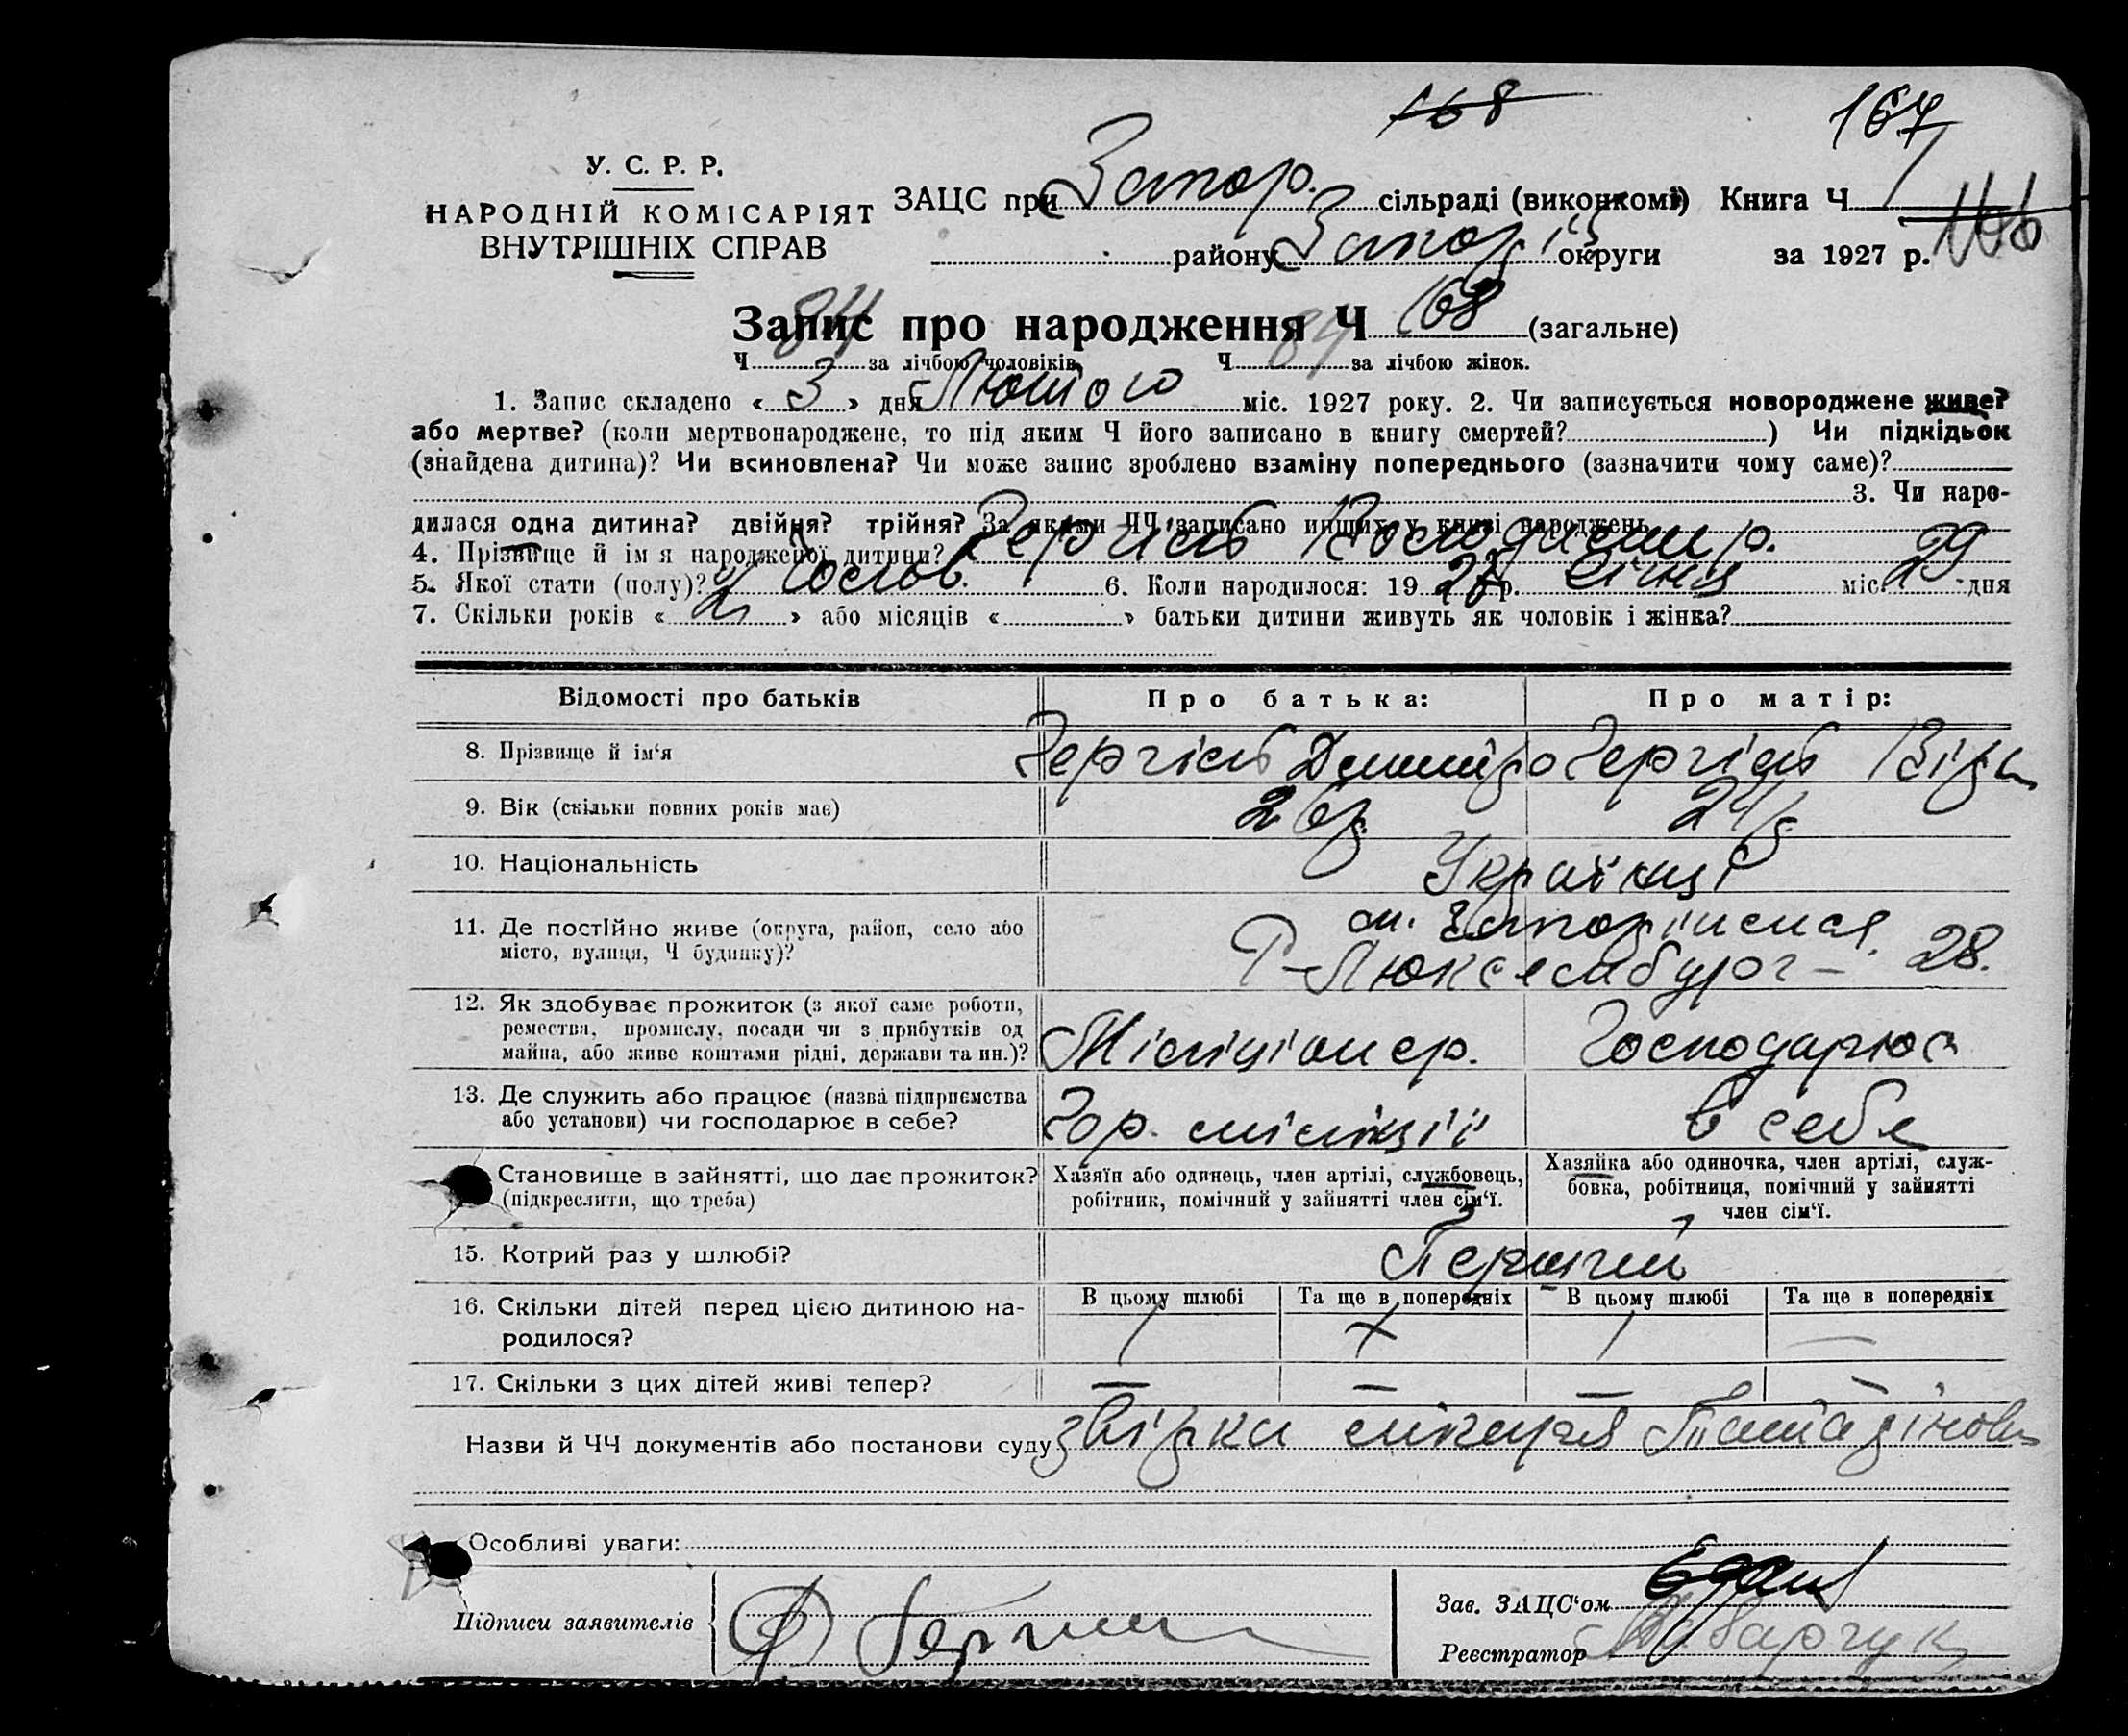 168
167
У. С. Р. Р.
НАРОДНІЙ КОМІСАРІЯТ
ВНУТРІШНІХ СПРАВ
ЗАЦС при Запор. сільраді (виконкомі) Книга Ч 1
166
району Запоріз округи за 1927 р.
Запис про народження Ч 168 (загальне)
Ч 84 за лічбою чоловіків Ч 84 за лічбою жінок.
1. Запис складено « 3 » дня Лютого міс. 1927 року. 2. Чи записується новороджене живе?
або мертве? (коли мертвонароджене, то під яким Ч його записано в книгу смертей? ) Чи підкідьок
(знайдена дитина)? Чи всиновлена? Чи може запис зроблено взаміну попереднього (зазначити чому саме)?
3. Чи наро-
дилася одна дитина? двійня? трійня? За якими ЧЧ записано инших у книзі народжень
4. Прізвище й ім я народженої дитини? Володимир. 29
5. Якої стати (полу)? Чолов. 6. Коли народилося: 19 27 р. Січня міс. дня
7. Скільки років « 2 » або місяців « » батьки дитини живуть як чоловік і жінка?
Відомості про батьків Про батька: Про матір:
8. Прізвище й ім'я Дмитро Віра
9. Вік (скільки повних років має) 26 р 24 р
10. Національність Українці
11. Де постійно живе (округа, район, село або місто, вулиця, Ч будинку)? м. Запоріжжя.
Р-Люксембург - 28.
12. Як здобуває прожиток (з якої саме роботи,
ремества, промислу, посади чи з прибутків од
майна, або живе коштами рідні, держави та ин.)? Міліціонер. Господарює
13. Де служить або працює (назва підприємства
або установи) чи господарює в себе? Гор. міліції в себе
Становище в зайнятті, що дає прожиток? Хазяїн або одинець, член артілі, службовець, Хазяйка або одиночка, член артілі, служ-
(підкреслити, що треба) робітник, помічний у зайнятті член сім'ї. бовка, робітниця, помічний у зайнятті
член сім'ї.
15. Котрий раз у шлюбі? Перший
16. Скільки дітей перед цією дитиною на- В цьому шлюбі Та ще в попередніх В цьому шлюбі Та ще в попередніх
родилося? 1 1 —
17. Скільки з цих дітей живі тепер? — — — —
Назви й ЧЧ документів або постанови суду лікаря
Особливі уваги:
Підписи заявителів
Зав. ЗАЦС'ом
Реєстратор